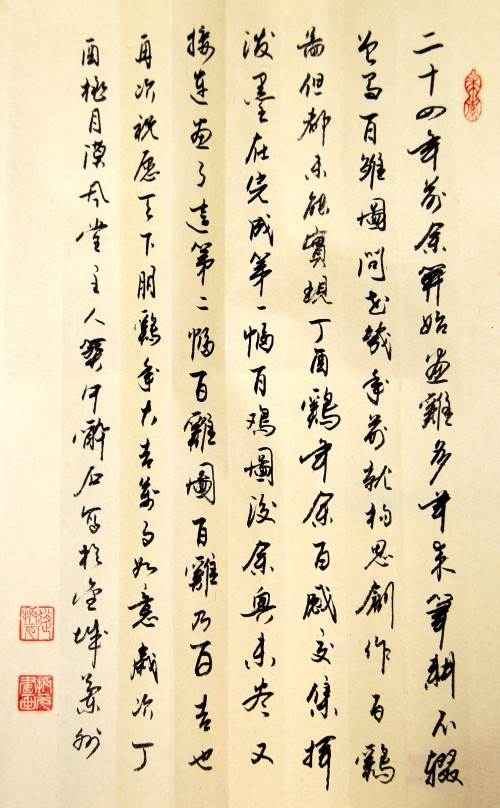 二十四年前余開始畫雞多年來筆耕不輟
百雞圖問世幾年前就构思創作百鷄
圖但都未能實現丁酉鷄年余百感交集揮
潑墨在完成第一幅百鸡圖後余興未尽又
接連畫了這第二幅百雞圖百雞乃百吉也
再次祝愿天下朋鷄年大吉萬事如意歲次丁
酉桃月漠风堂主人醉石写於金城蘭州